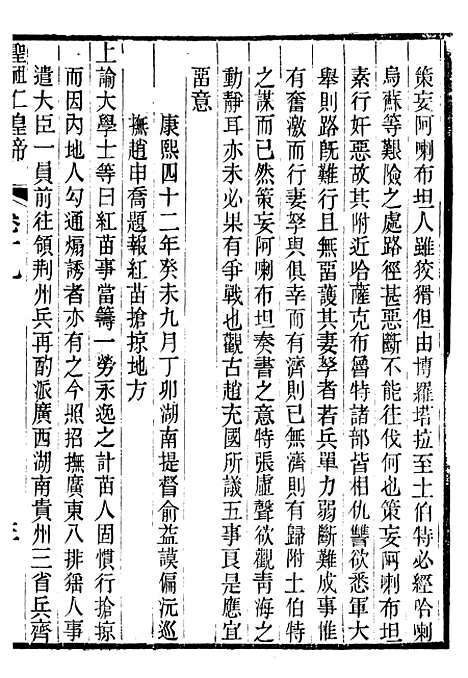 策妄阿喇布坦人雖狡猾但由博羅塔拉至土伯特必經哈喇
烏蘇等艱險之處路徑甚惡斷不能往伐何也策妄阿喇布坦
素行奸惡故其附近哈薩克布魯特諸部皆相仇讐欲悉軍大
舉則路旣難行且無畱護其妻孥者若兵單力弱斷難成事惟
有奮激而行妻孥與俱幸而有濟則已無濟則有歸附土伯特
之謀而已然策妄阿喇布坦奏書之意特張虛聲欲觀靑海之
動靜耳亦未必果有爭戰也觀古趙充國所議五事良是應宜
畱意
康熙四十二年癸未九月丁卯湖南提督俞益謨偏沅巡
撫趙申喬題報紅苗搶掠地方
上諭大學士等曰紅苗事當籌一勞永逸之計苗人固慣行搶掠
而因內地人勾通煽誘者亦有之今照招撫廣東八排猺人事
遣大臣一員前往領荆州兵再酌派廣西湖南貴州三省兵齊
聖祖仁皇帝
卷十九
三